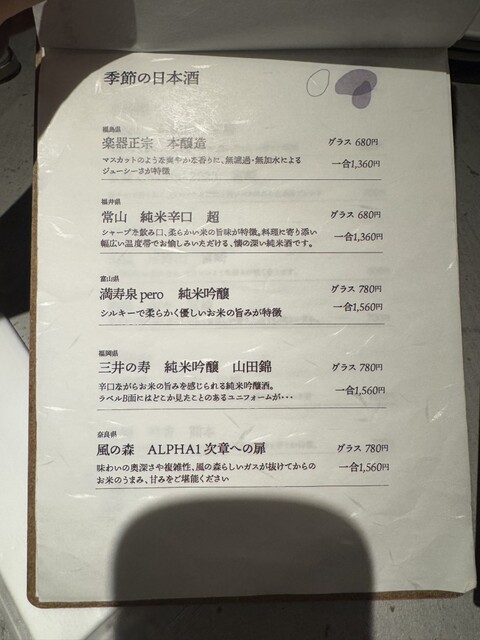 季節の日本酒
福島県
楽器正宗　本醸造
グラス 680円
マスカットのような爽やかな香りに、無濾過・無加水による
ジューシーさが特徴
一合1,360円
福井県
常山　純米辛口　超
グラス 680円
シャープな飲み口、柔らかい米の旨味が特徴。料理に寄り添い
幅広い温度帯でお愉しみいただける、懐の深い純米酒です。
一合1,360円
富山県
満寿泉 pero　純米吟醸
グラス 780円
シルキーで柔らかく優しいお米の旨みが特徴
一合1,560円
福岡県
三井の寿　純米吟醸　山田錦
グラス 780円
辛口ながらお米の旨みを感じられる純米吟醸酒。
ラベルB面にはどこか見たことのあるユニフォームが・・・
一合1,560円
奈良県
風の森　ALPHA1 次章への扉
グラス 780円
味わいの奥深さや複雑性、風の森らしいガスが抜けてからの
お米のうまみ、甘みをご堪能ください
一合1,560円